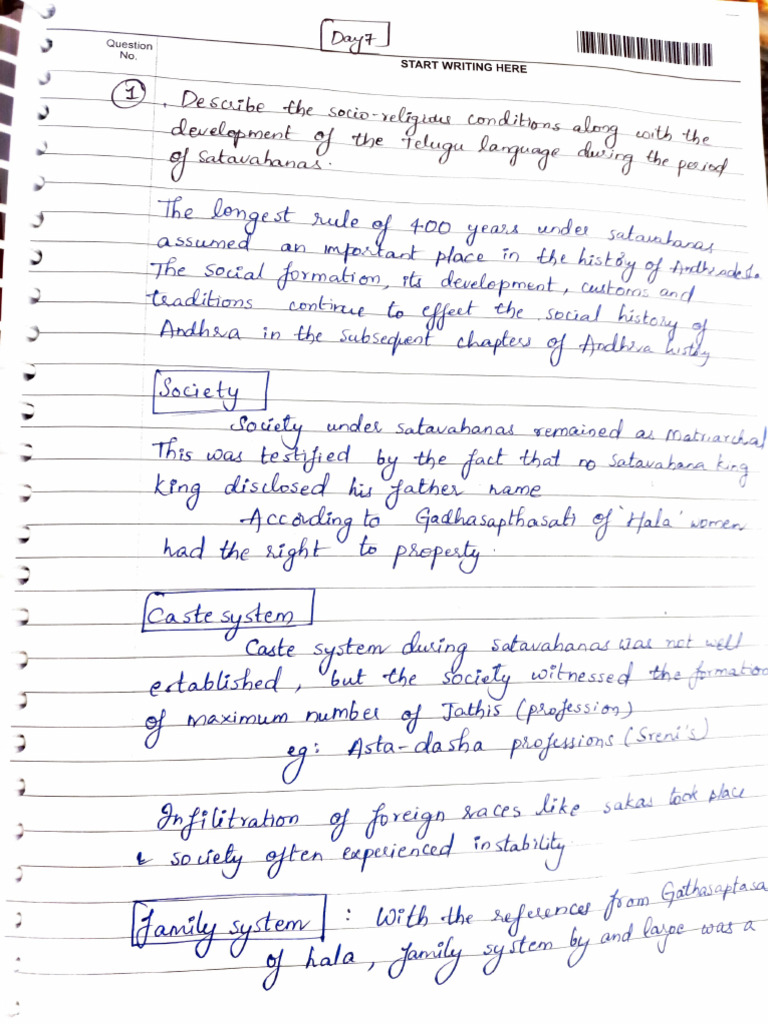 Day 7
Question
No.
START WRITING HERE
1 . Describe the socio-religious conditions along with the
development of the Telugu language during the period
of Satavahanas.
The longest rule of 400 years under satavahanas
assumed an important place in the history of Andhradesa.
The social formation, its development, customs and
traditions continue to effect the social history of
Andhra in the subsequent chapters of Andhra history
Society
Society under satavahanas remained as Matriarchal
This was testified by the fact that no Satavahana king
king disclosed his father name
According to Gadhasapthasati of 'Hala' women
had the right to property.
Caste system
Caste system during satavahanas was not well
established, but the society witnessed the formation
of maximum number of Jathis (profession)
eg: Asta-dasha professions (Sreni's)
Infilitration of foreign races like sakas took place
& society often experienced instability.
family system : With the references from Gathasaptasa
of hala, family system by and large was a